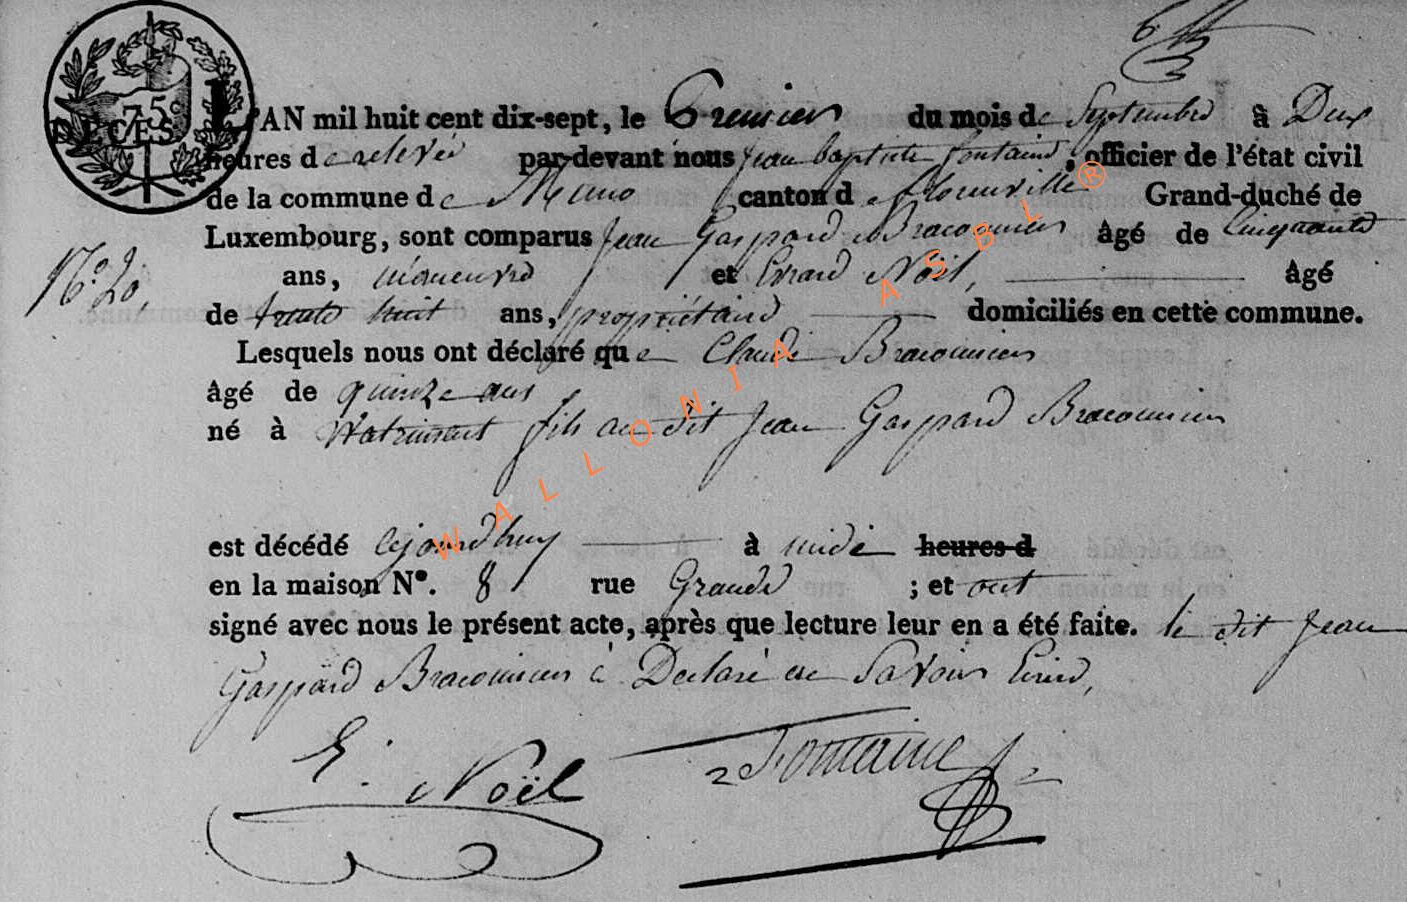 75c
DÉCÈS
L'AN mil huit cent dix-sept, le Premier du mois de Septembre à Deux
heures de relevée par-devant nous Jean baptiste fontaine, officier de l'état civil
de la commune de Muno canton d florenville Grand-duché de
Luxembourg, sont comparus Jean Gaspard Braconnier âgé de Cinquante
ans, manœuvre et Erard Noël, âgé
N.º 20,
de trente huit ans, propriétaire domiciliés en cette commune.
Lesquels nous ont déclaré que Claude Braconnier
âgé de quinze ans
né à Watrinsart fils au dit Jean Gaspard Braconnier
est décédé cejourdhuy à midi heures d
en la maison Nº. 8 rue Grande ; et ont
signé avec nous le présent acte, après que lecture leur en a été faite. le dit Jean
Gaspard Braconnier à Declaré ne Savoir Ecrire,
E. Noël Fontaine
WALLONIA ASBL ®